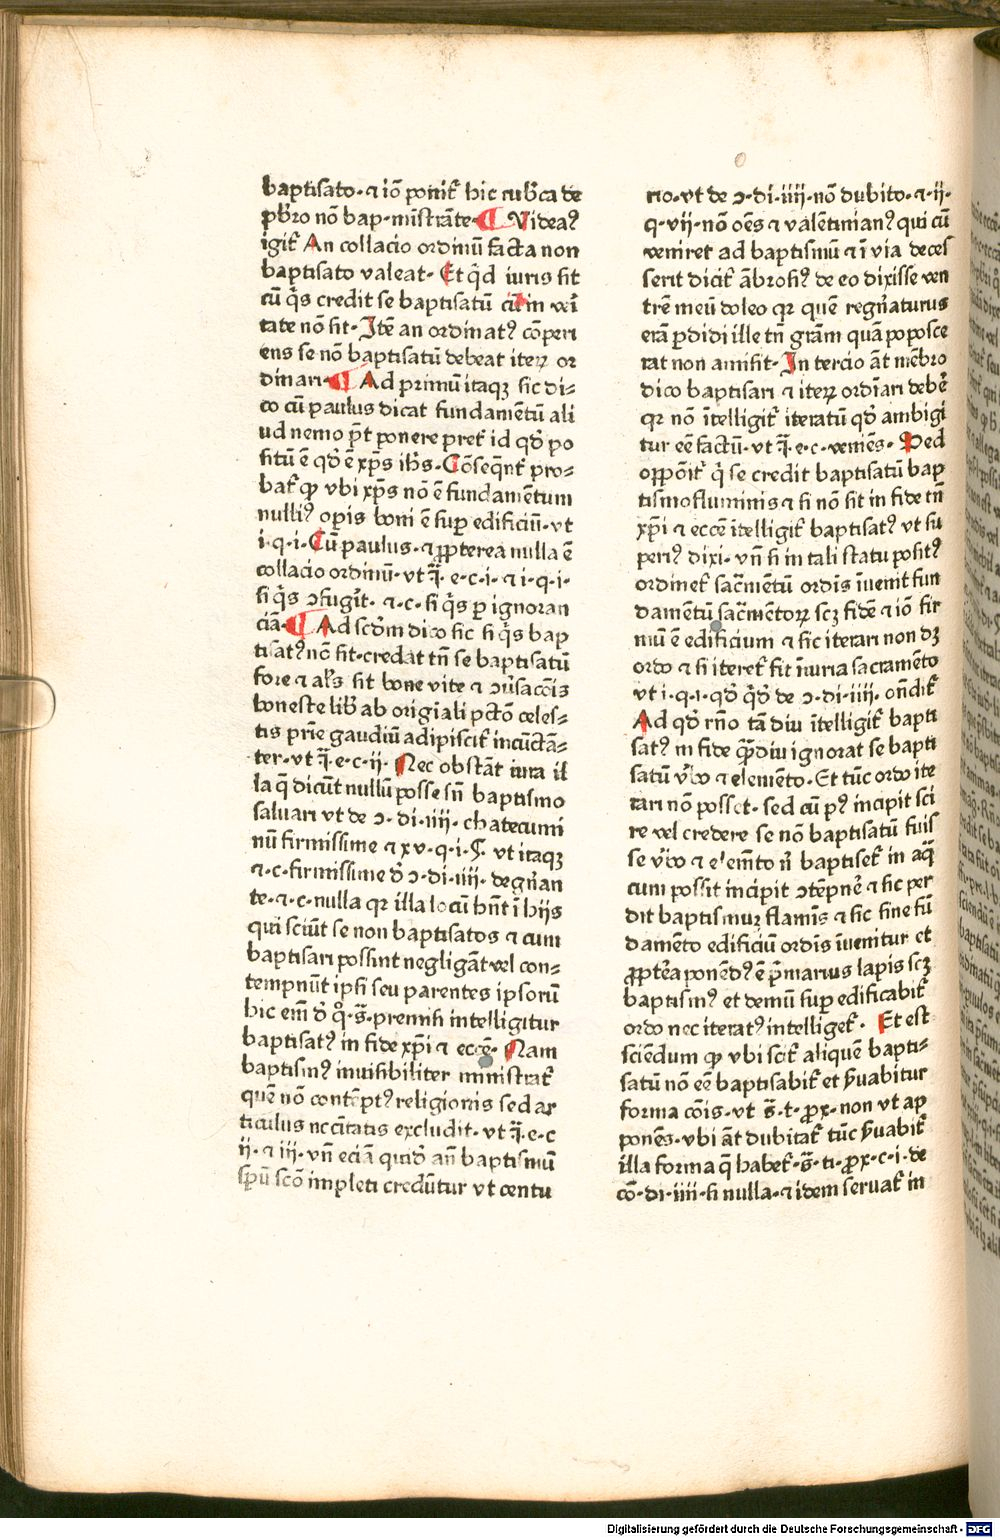 baptisato· ⁊ iō ponit᷑ hic rub͛ca de
pb͛ro nō bap·mīstrāte· ¶ Videaꝰ
igit᷑ An collacio ordinū facta non
baptisato valeat· Et qͥd iuris sit
cū qͥs credit se baptisatū cū in veī
tate nō sit· Itē an ordinatꝰ cōperi
ens se nō baptisatū debeat iteꝝ or
dinari· ¶ Ad primū itaqꝫ sic di⸗
co cū paulus dicat fundamētū ali
ud nemo p̄t ponere pret͛ id qd̛ po
situ̅ ē qd̛ ē xp̄s ih̄s· Cōseqn̄t͛ pro⸗
bat᷑ ꝙ vbi xp̄s nō ē fundamentum
nulliꝰ oꝑis boni ē suꝑ edificiū· vt
i·q·i·Cū paulus· ⁊ ꝓpterea nulla ē
collacio ordinū· vt q̄· e·c·i· ⁊ i·q·i·
si qͥs ɔfugīt· ⁊·c· si qͥs ꝑ ignoran
ciā· ¶ Ad scd̄m dico sic si qͥs bap
tisatꝰ nō sit·credat tn̄ se baptisatū
fore ⁊ al̓s sit bone vite ⁊ ɔūsacōis
honeste lib͛ ab origīali pctō celes⸗
tis prīe gaudiū adipiscit᷑ incūctā⸗
ter· vt q̄· e·c·ii· Nec obstāt iura il
la q̄ dicūt nullū posse sn̄ baptismo
saluari vt de ɔ·di·iiii·chatecumi
nū firmissime ⁊ xv·q·i·§· vt itaqꝫ
⁊·c·firmissime d̓ ɔ·di·iiii·de gn̄an
te· ⁊·c·nulla qꝛ illa locū hn̄t ī hijs
qui sciūt se non baptisatos ⁊ cum
baptisari possint negligāt vel con⸗
tempnūt ipsi seu parentes ipsorū
hic em̄ d̓ qͦ·s̄·premisi intelligitur
baptisatꝰ in fide xp̄i ⁊ ecc̄e· Nam
baptismꝰ inuisibiliter ministrat᷑
quē nō contēptꝰ religionis sed ar
ticulus nccītatis excludit· vt q̄·e·c
ii· ⁊ iii· vn̄ eciā quid̓ an̄ baptismū
spū scō impleti credūtur vt centu
rio·vt de ɔ·di·iiii·nō dubito· ⁊·ii·
q·vii·nō oēs ⁊ valētinianꝰ qui cū
veniret ad baptismū ⁊ ī via deces
serit dicit᷑ ābrosiꝰ de eo dixisse ven
trē meū doleo qꝛ quē regn̄aturus
erā ꝑdidi ille tn̄ grām quā poposce
rat non amisit· In tercio āt mēbro
dico baptisari ⁊ iteꝝ ordīari debē̓
qꝛ nō ītelligit᷑ iteratū qd̓ ambigi
tur eē factū· vt q̄·e·c·veniēs· Sed
oppōit᷑ qͥ se credit baptisatū bap
tismo fluminis ⁊ si nō sit in fide tn̄
xp̄i ⁊ ecc̄e ītelligit᷑ baptisatꝰ vt su
periꝰ dixi· vn̄ si in tali statu positꝰ
ordinet᷑ sac̄mētū ordīs īuenit fun
damētū sac̄mētoꝝ scꝫ fidē ⁊ iō fir
mū ē edificium ⁊ sic iterari non dꝫ
ordo ⁊ si iteret᷑ fit īiuria sacramēto
vt i·q·i·qd̓ qͥd̓ de ɔ·di·iiii· on̄dit᷑
Ad qd̓ rn̄o tā diu ītelligit᷑ bapti
satꝰ in fide q̄ꝫdiu ignorat se bapti
satū v̓bo ⁊ elemēto· Et tūc ordo ite
rari nō posset· sed cū pꝰ incipit sci
re vel credere se nō baptisatū fuis
se v̓bo ⁊ elemēto n̄ baptiset᷑ in aq̄
cum possit incipit ɔtēpnē̓ ⁊ sic per
dit baptismuꝫ flamīs ⁊ sic sine fū
damēto edificiū ordīs īuenitur et
ꝓpt̓ea ponēdꝰ ē p̄marius lapis scꝫ
baptismꝰ et demū suꝑ edificabit᷑
ordo nec iteratꝰ intelliget᷑· Et est
sciēdum ꝙ vbi scit᷑ aliquē bapti⸗
satū nō eē baptisabit᷑ et s̓uabitur
forma cōis· vt s̄·t·ꝓx·non vt ap
ponēs· vbi āt dubitat᷑ tūc s̓uabit᷑
illa forma q̄ habet᷑·s̄·ti·ꝓx·c·i·de
cō·di·iiii·si nulla· ⁊ idem seruat᷑ in
Digitalisierung gefördert durch die Deutsche Forschungsgemeinschaft - DFG